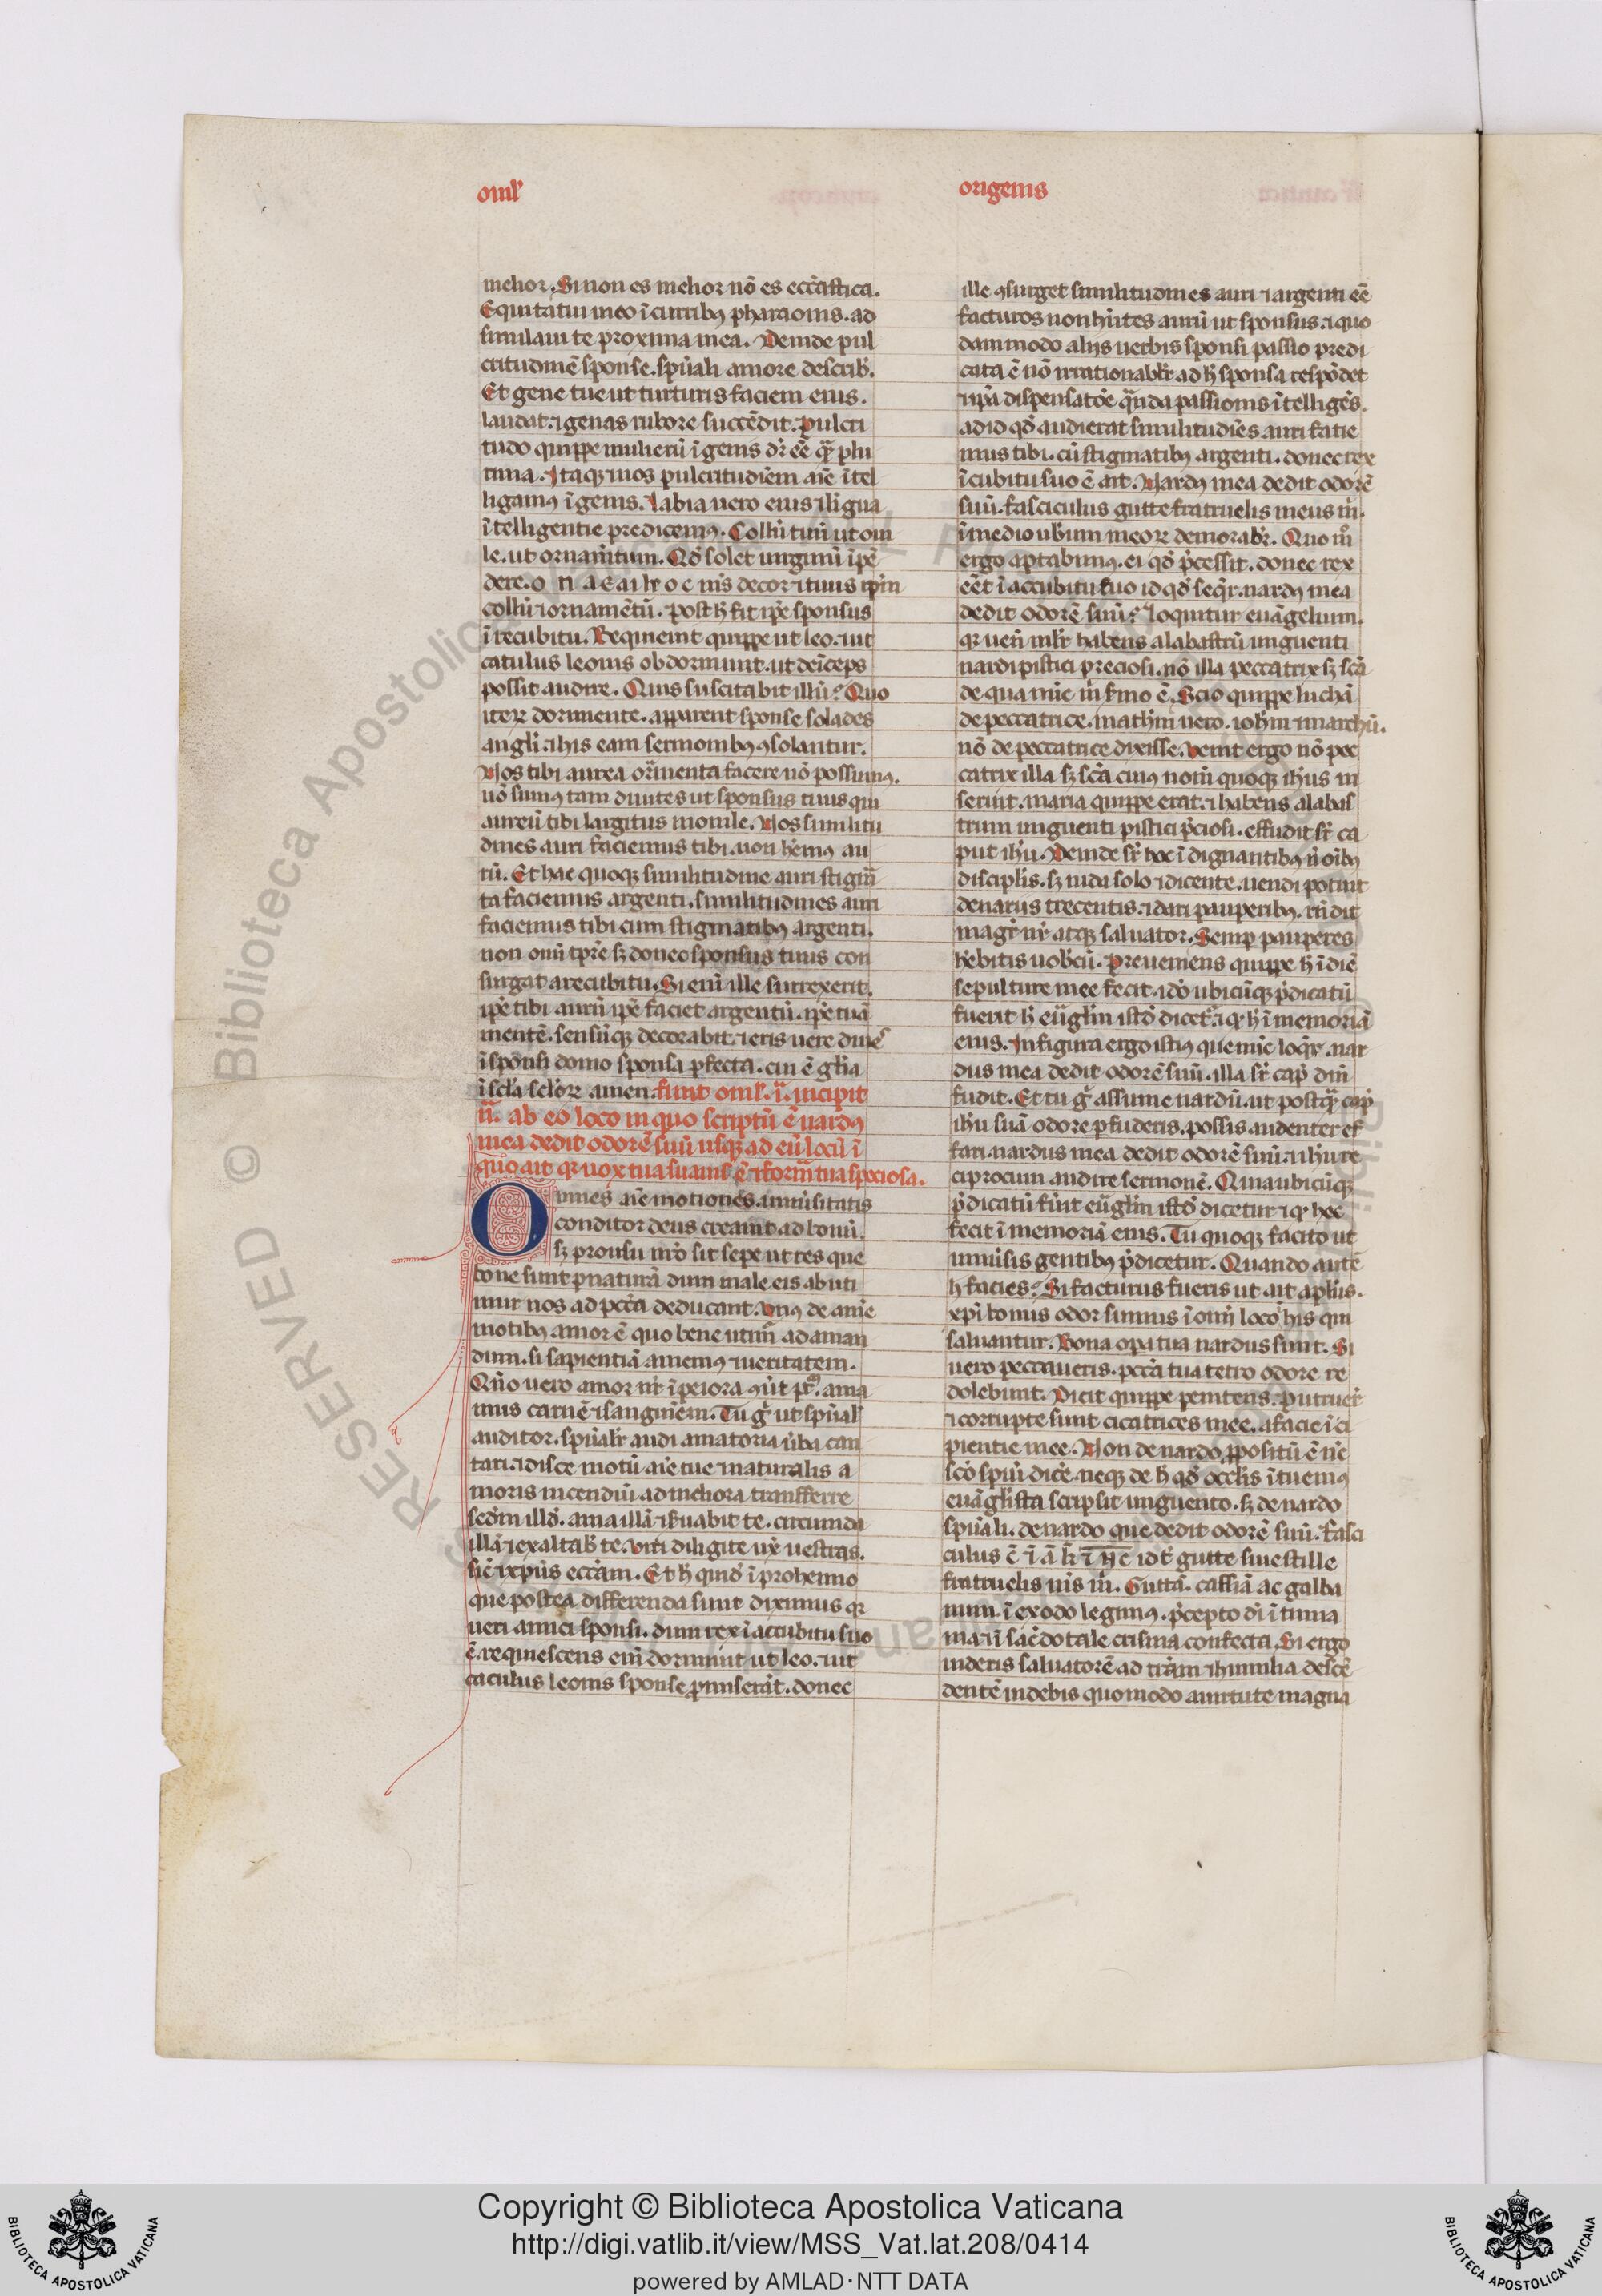 oml'
origenis
melior. Si non es melior nō es eccāstica.
Equitatui meo ī curribꝰ pharaonis. ad
similaui te proxima mea. Deinde pul
critudinē sponse. spūali amore describ'.
Et gene tue ut turturis faciem eius.
laudat. ⁊ genas rubore succēdit. Pulcri
tudo quippe mulierū ī genis dr̄ eē qͣ plu
rima. Itaqꝫ ⁊ nos pulcritudīem aīe ītel
ligamꝰ ī genis. Labia uero eius ⁊ līgua
ītelligentie predicemꝰ. Collū tuū ut om
le. ut ornam̄tum. Qd̓ solet uirginū īpē
dere.
collū ⁊ ornamētū. post h̓ fit ip̄e sponsus
ī recubitu. Requieuit quippe ut leo. ⁊ ut
catulus leonis obdormiuit. ut deīceps
possit audire. Quis suscitabit illū? Quo
iteꝝ dormiente. apparent sponse solades
angl'i. ⁊ his eam sermonibꝰ ꝯsolantur.
Nos tibi aurea or̄menta facere nō possumꝰ.
nō sumꝰ tam diuites ut sponsus tuus qui
aureū tibi largitus monile. Nos similitu
dines auri faciemus tibi. non hēmꝰ au
rū. Et hac quoqꝫ similitudine auri stigm̄
ta faciemus argenti. similitudines auri
faciemus tibi cum stigmatibꝰ argenti.
non omī tp̄re sꝫ donec sponsus tuus con
surgat a recubitu. Si eni ille surrexerit.
ip̄e tibi aurū ip̄e faciet argentū. ip̄e tuā
mentē. sensūqꝫ decorabit. ⁊ eris uere diues
ī spōnsi domo sponsa ꝑfecta. cui ē gl̄ia
ī scl̄a scl̄oꝝ amen. finit oml'. i. incipit
ii. ab eo loco in quo scriptū ē nardꝰ
mea dedit odorē suū usqꝫ ad eū locū ī
quo ait qꝛ uox tua suauis ē ⁊ form̄ tua speciosa.
Omnes aīe motiones. uniūsitatis
conditor deus creauit ad bonū.
sꝫ pro usu nr̄o fit sepe ut res que
bone sunt ꝑ naturā dum male eis abuti
mur nos ad pcc̄a deducant. Vnꝰ de anīe
motibꝰ amor ē quo bene utim̄ ad aman
dum. si sapientiā amemꝰ ⁊ ueritatem.
Qn̄o uero amor nr̄ ī peiora ama
mus carnē ⁊ sanguīem. Tu gͦ ut spūal'
auditor. spūalr̄ audi amatoria ūba can
tari. ⁊ disce motū aīe tue ⁊ naturalis a
moris incendiū. ad meliora transferre
scd̄m illd̓. ama illā ⁊ ẜuabit te. circunda
illā ⁊ exaltab̄ te. Viri diligite ux̄ uestras.
sīc ⁊ xp̄us eccām. Et h̓ quid̓ ī prohemio
que postea differenda sunt diximus qꝛ
ueri amici sponsi. dum rex ī accubitu suo
ē. requiescens eni dormiuit ut leo. ⁊ ut
catulus leonis sponse ꝓmiserāt. donec
ille ꝯsurget similitudines auri ⁊ argenti eē
facturos non hn̄tes aurū ut sponsus. ⁊ quo
dammodo alijs uerbis sponsi passio predi
cata ē nō irrationabilr̄ ad h̓ sponsa respōdet
⁊ ip̄a dispensatōe qͣnda passionis ītelligēs.
ad id qd̓ audierat similitudīes auri fatie
mus tibi. cū stigmatibꝰ argenti. donec rex
ī cubitu suo ē ait. Nardꝰ mea dedit odorē
suū. fasciculus gutte fratruelis meus m̄.
ī medio ub̄ium meoꝝ demorab̄r. Quo mͦ
ergo aptabimꝰ. ei qd̓ p̄cessit. donec rex
eēt ī accubitu suo id qd̓ seq̄r. nardꝰ mea
dedit odorē suū? Loquitur euāgelium.
qꝛ uen̄ mlr̄ habens alabastrū unguenti
nardi pistici preciosi. nō illa peccatrix sꝫ scā
de qua nūc m̄ ẜmo ē. Scio quippe luchā
de peccatrice. math̄m uero. ioh̄m ⁊ marchū.
nō de peccatrice dixisse. Venit ergo nō pec
catrix illa sꝫ scā cuiꝰ nom̄ quoqꝫ ioh̄es in
seruit. maria quippe erat. ⁊ habens alabas
trum unguenti pistici p̄ciosi. effudit sr̄ ca
put ih̄u. Deinde sr̄ hoc ī dignantibꝰ n̄ oīb;
discipl̄is. sꝫ iuda solo ⁊ dicente. uendi potuit
denariis trecentis. ⁊ dari pauperibꝰ. rn̄dit
magr̄ nr̄ atqꝫ saluator. Semꝑ pauperes
hēbitis uob̄cū. Preueniens quippe h̓ ī diē
sepulture mee fecit. ⁊ do ubicūqꝫ p̄dicatū
fuerit h̓ eūgl̄im istd̓ dicet̄ ⁊ qꝛ h̓ ī memoriā
eius. In figura ergo istiꝰ que nūc loq̄r. nar
dus mea dedit odorē suū. illa sr̄ cap̄ dn̄i
fudit. Et tu gͦ assume nardū. ut postqͣ cap̄
ih̄u suā odore ꝑfuderis. possis audenter ef
fari. nardus mea dedit odorē suū. ⁊ ih̄u re
ciprocum audire sermonē. Quia ubicūqꝫ
p̄dicatū fūit eūgl̄im istd̓ dicetur ⁊ qꝛ hoc
fecit ī memoriā eius. Tu quoqꝫ facito ut
uniūsis gentibus p̄dicetur. Quando autē
h̓ facies? Si facturus fueris ut ait apl̄us.
xp̄i bonus odor sumus ī omī loco his qui
saluantur. Bona opa tua nardus sunt. Si
uero peccaueris. pcc̄a tua tetro odore re
dolebunt. Dicit quippe penitens. Putruer̄
⁊ corrupte sunt cicatrices mee. a facie īci
pientie mee. Non de nardo ꝓpositū ē nc̄
scō spūi dicē. neqꝫ de h̓ qd̓ ocel̄is ītuemꝰ
euāgl̄ista scripsit unguento. sꝫ de nardo
spūali. de nardo que dedit odorē suū. Fasci
culus gutte siue stille
fratruelis m̄s m̄. Guttā. cassiā ac galba
num. ī exodo legimꝰ. p̄cepto dī ī timia
ma ⁊ ī sac̄dotale crisma confecta. Si ergo
uideris saluatorē ad t̄ram ⁊ humilia descē
dentē uidebis quomodo a uirtute magna
Copyright © Biblioteca Apostolica Vaticana
http://digi.vatlib.it/view/MSS_Vat.lat.208/0414
powered by AMLAD·NTT DATA
BIBLIOTECA APOSTOLICA VATICANA
BIBLIOTECA APOSTOLICA VATICANA